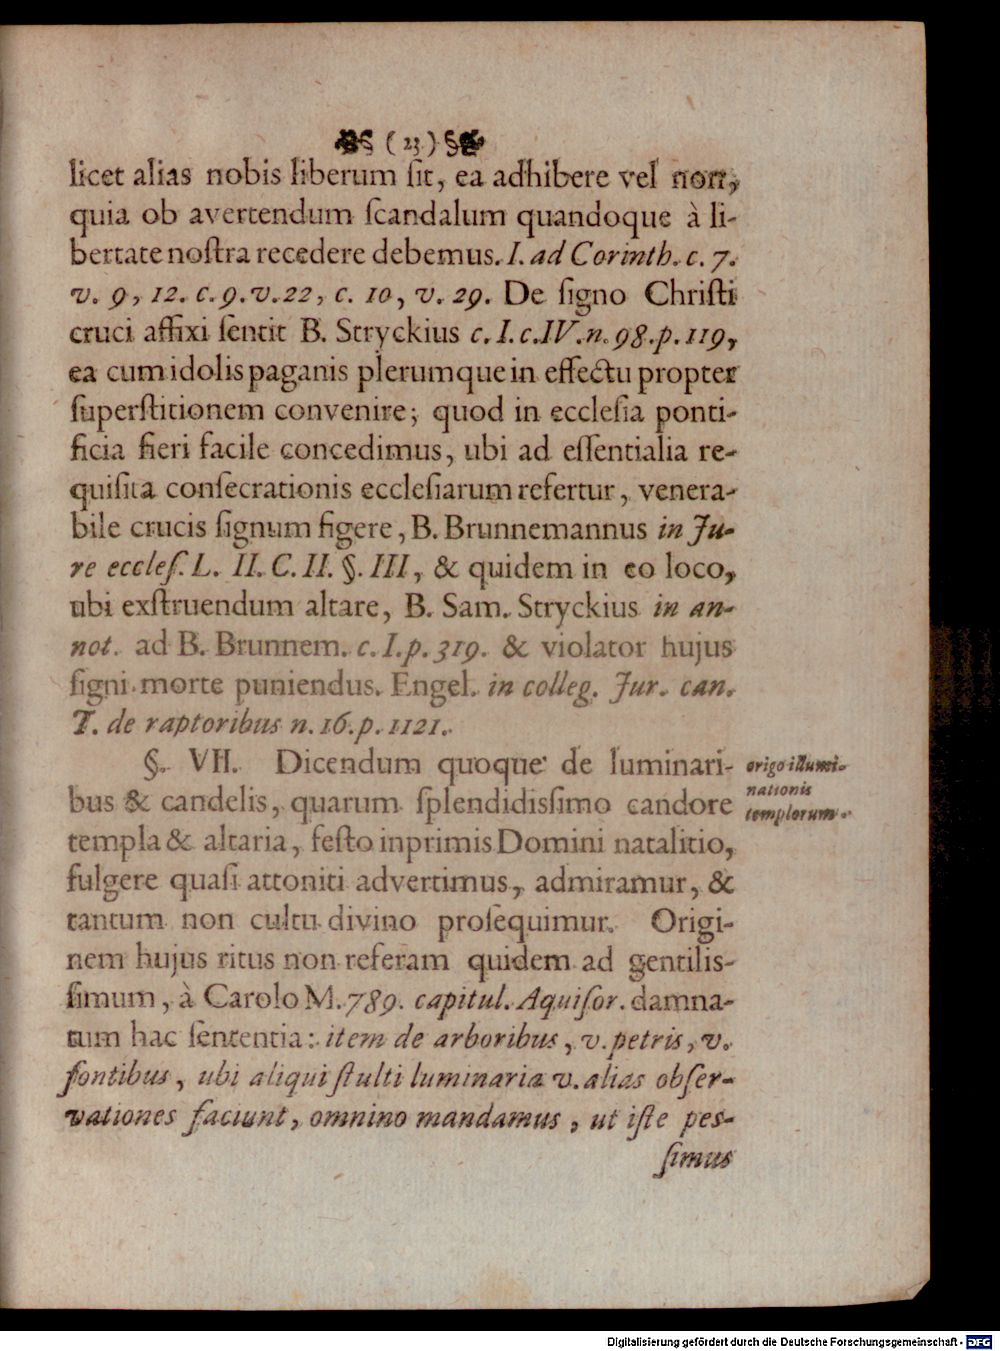 ( 23 )
licet alias nobis liberum ſit, ea adhibere vel non,
quia ob avertendum ſcandalum quandoque à li-
bertate noſtra recedere debemus. I. ad Corinth. c. 7.
v. 9, 12. c. 9. v. 22, c. 10, v. 29. De ſigno Chriſti
cruci affixi ſentit B. Stryckius c. I. c. IV. n. 98. p. 119,
ea cum idolis paganis plerumque in effectu propter
ſuperſtitionem convenire; quod in eccleſia ponti-
ficia fieri facile concedimus, ubi ad eſſentialia re-
quiſita conſecrationis eccleſiarum refertur, venera-
bile crucis ſignum figere, B. Brunnemannus in Ju-
re eccleſ. L. II. C. II. §. III, & quidem in eo loco,
ubi exſtruendum altare, B. Sam. Stryckius in an-
not. ad B. Brunnem. c. I. p. 319. & violator hujus
ſigni morte puniendus. Engel. in colleg. Jur. can.
T. de raptoribus n. 16. p. 1121.
§. VII. Dicendum quoque de luminari-
bus & candelis, quarum ſplendidisſimo candore
templa & altaria, feſto inprimis Domini natalitio,
fulgere quaſi attoniti advertimus, admiramur, &
tantum non cultu divino proſequimur. Origi-
nem hujus ritus non referam quidem ad gentilis-
ſimum, à Carolo M. 789. capitul. Aquiſor. damna-
tum hac ſententia: item de arboribus, v. petris, v.
fontibus, ubi aliqui ſtulti luminaria v. alias obſer-
vationes faciunt, omnino mandamus, ut iſte pes-
ſimus
origo illumi-
nationis
templorum.
Digitalisierung gefördert durch die Deutsche Forschungsgemeinschaft - DFG